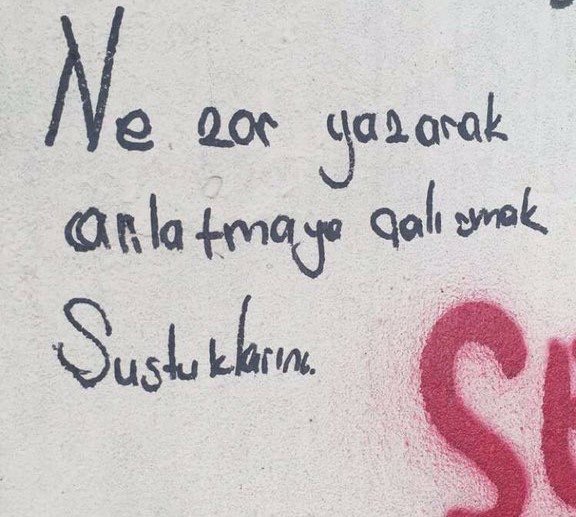 Ne zor yazarak
anlatmaya çalışmak
Sustuklarını.